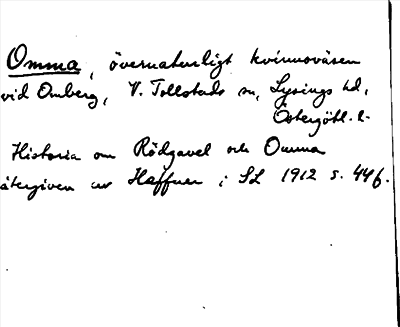 Omma, övernaturligt kvinnoväsen
vid Omberg, V. Tollstads sn, Lysings hd,
Östergötl. l.
Historia om Rödgavel och Omma
återgiven av Haffner i SL 1912 s. 44 f.